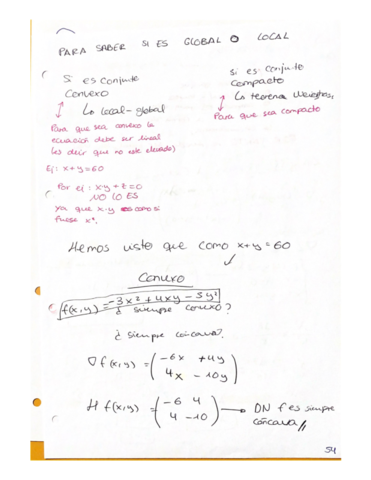 PARA SABER SI ES GLOBAL O LOCAL
Si es conjunto
convexo
↳ local-global
Para que sea convexo la
ecuación debe ser lineal
(es decir que no este elevado)
Ej: x+y=60
Por ej: x·y + z=0
NO LO ES
ya que x·y es como si
fuese x².
si es conjunto
compacto
↳ teorema Weierstrass
Para que sea compacto
Hemos visto que como x+y=60
✓
Convexo
f(x,y)=-3x²+4xy-5y²
¿siempre convexo?
¿siempre cóncava?
∇f(x,y) = (-6x +4y
4x -10y)
H f(x,y) = (-6 4
4 -10) → DN f es siempre
cóncava //
54